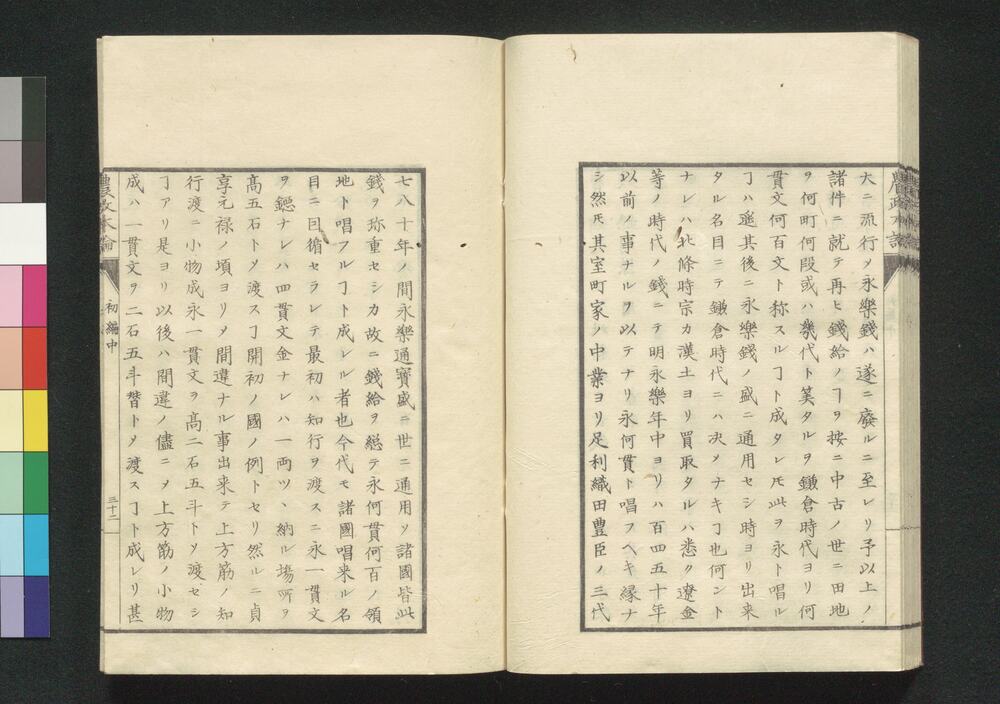 大ニ流行〆永樂錢ハ遂ニ廢ルニ至レリ予以上ノ
諸件ニ就テ再ヒ錢給ノヿヲ按ニ中古ノ世ニ田地
ヲ何町何段或ハ幾代ト筭タルヲ鎌倉時代ヨリ何
貫文何百文ト称スルヿト成タレ𪜈此ヲ永ト唱ル
ヿハ遥其後ニ永樂錢ノ盛ニ通用セシ時ヨリ出来
タル名目ニテ鎌倉時代ニハ决〆ナキヿ也何ント
ナレハ北條時宗カ漢土ヨリ買取タルハ悉ク遼金
等ノ時代ノ錢ニテ明永樂年中ヨリハ百四五十年
以前ノ事ナルヲ以テナリ永何貫ト唱フヘキ縁ナ
シ然𪜈其室町家ノ中葉ヨリ足利織田豊臣ノ三代
七八十年ノ間永樂通寳盛ニ世ニ通用ソ諸國皆此
錢ヲ珎重セシカ故ニ錢給ヲ総テ永何貫何百ノ領
地ト唱フルヿト成レル者也今代モ諸國唱来ル名
目ニ因循セラレテ最初ハ知行ヲ渡スニ永一貫文
ヲ鐚ナレハ四貫文金ナレハ一両ツヽ納ル塲所ヲ
高五石ト〆渡スヿ開初ノ國ノ例トセリ然ルニ貞
享元禄ノ頃ヨリ〆間違ナル事出来テ上方筋ノ知
行渡ニ小物成永一貫文ヲ高二石五斗ト〆渡セシ
ヿアリ是ヨリ以後ハ間違ノ儘ニ〆上方筋ノ小物
成ハ一貫文ヲ二石五斗替ト〆渡スヿト成レリ甚
農政本論
初編中
三十二